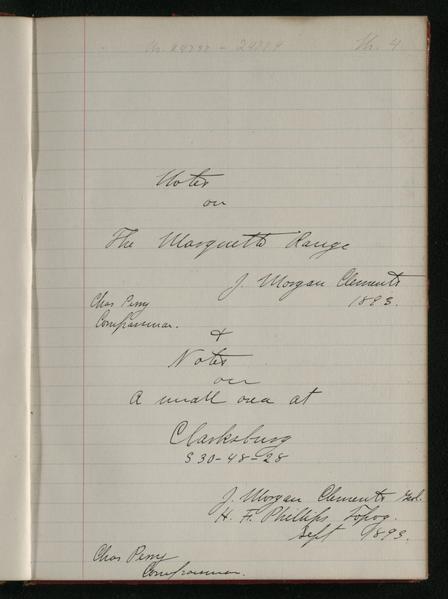 Notes
on
The Marquette Range
J. Morgan Clements
1893.
Chas Perry
Compassman.
&
Notes
on
A small area at
Clarksburg
S 30-48-28
J. Morgan Clements Geol.
H. F. Phillips Topog.
Sept 1893.
Chas Perry
Compassman.